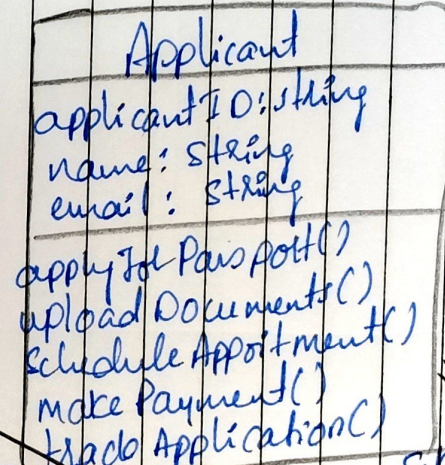 Applicant
applicantID: string
name: String
email: String
applyForPassport()
uploadDocuments()
scheduleAppoitment()
makePayment()
Application()